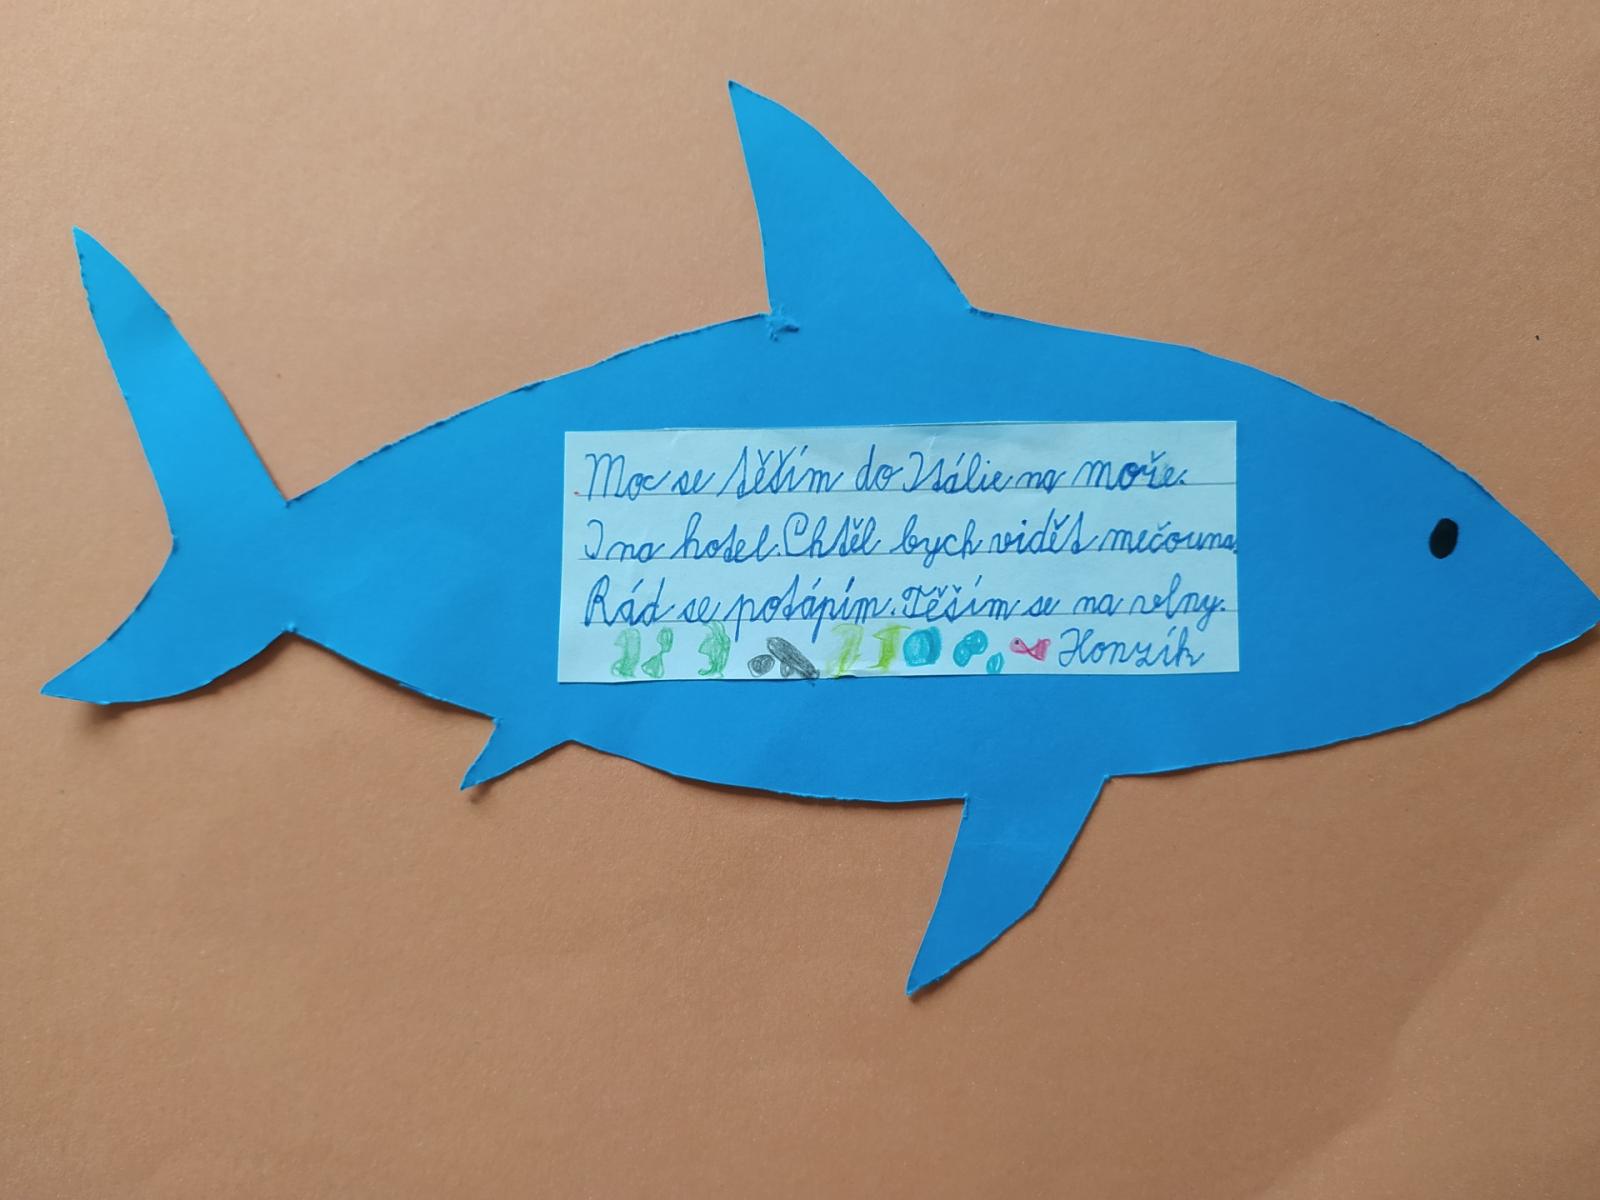 Moc se těším do Itálie na moře.
I na hotel. Chtěl bych vidět mečouna.
Rád se potápím. Těším se na vlny.
Honzík